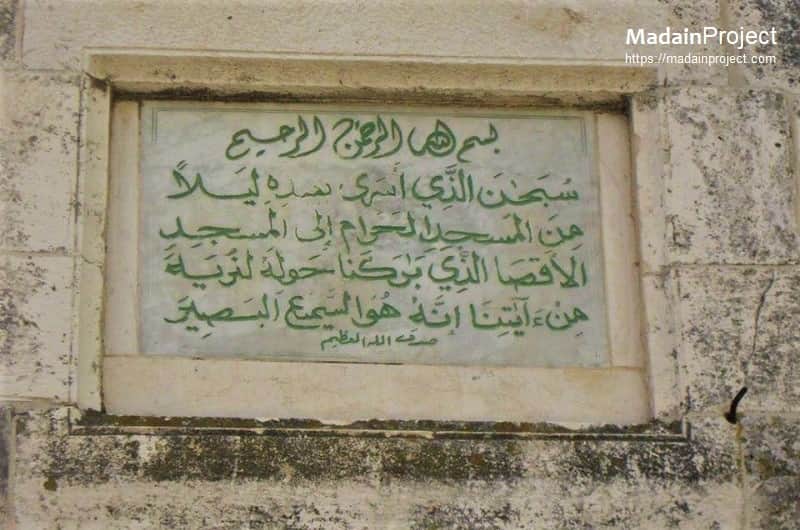 MadainProject
https://madainproject.com
بسم الله الرحمن الرحيم
سُبحَٰنَ الَّذِي أَسرَىٰ بعبدِهِ لَيلًا
مِنَ المَسجِدِ الحَرَامِ إِلَى المَسجِدِ
الأَقصَا الَّذِي بَٰرَكنَا حَولَهُ لنُرِيَهُ
مِن ءَايَٰتِنَا إِنَّهُ هُوَ السَّمِيعُ البَصِيرُ
صدق الله العظيم